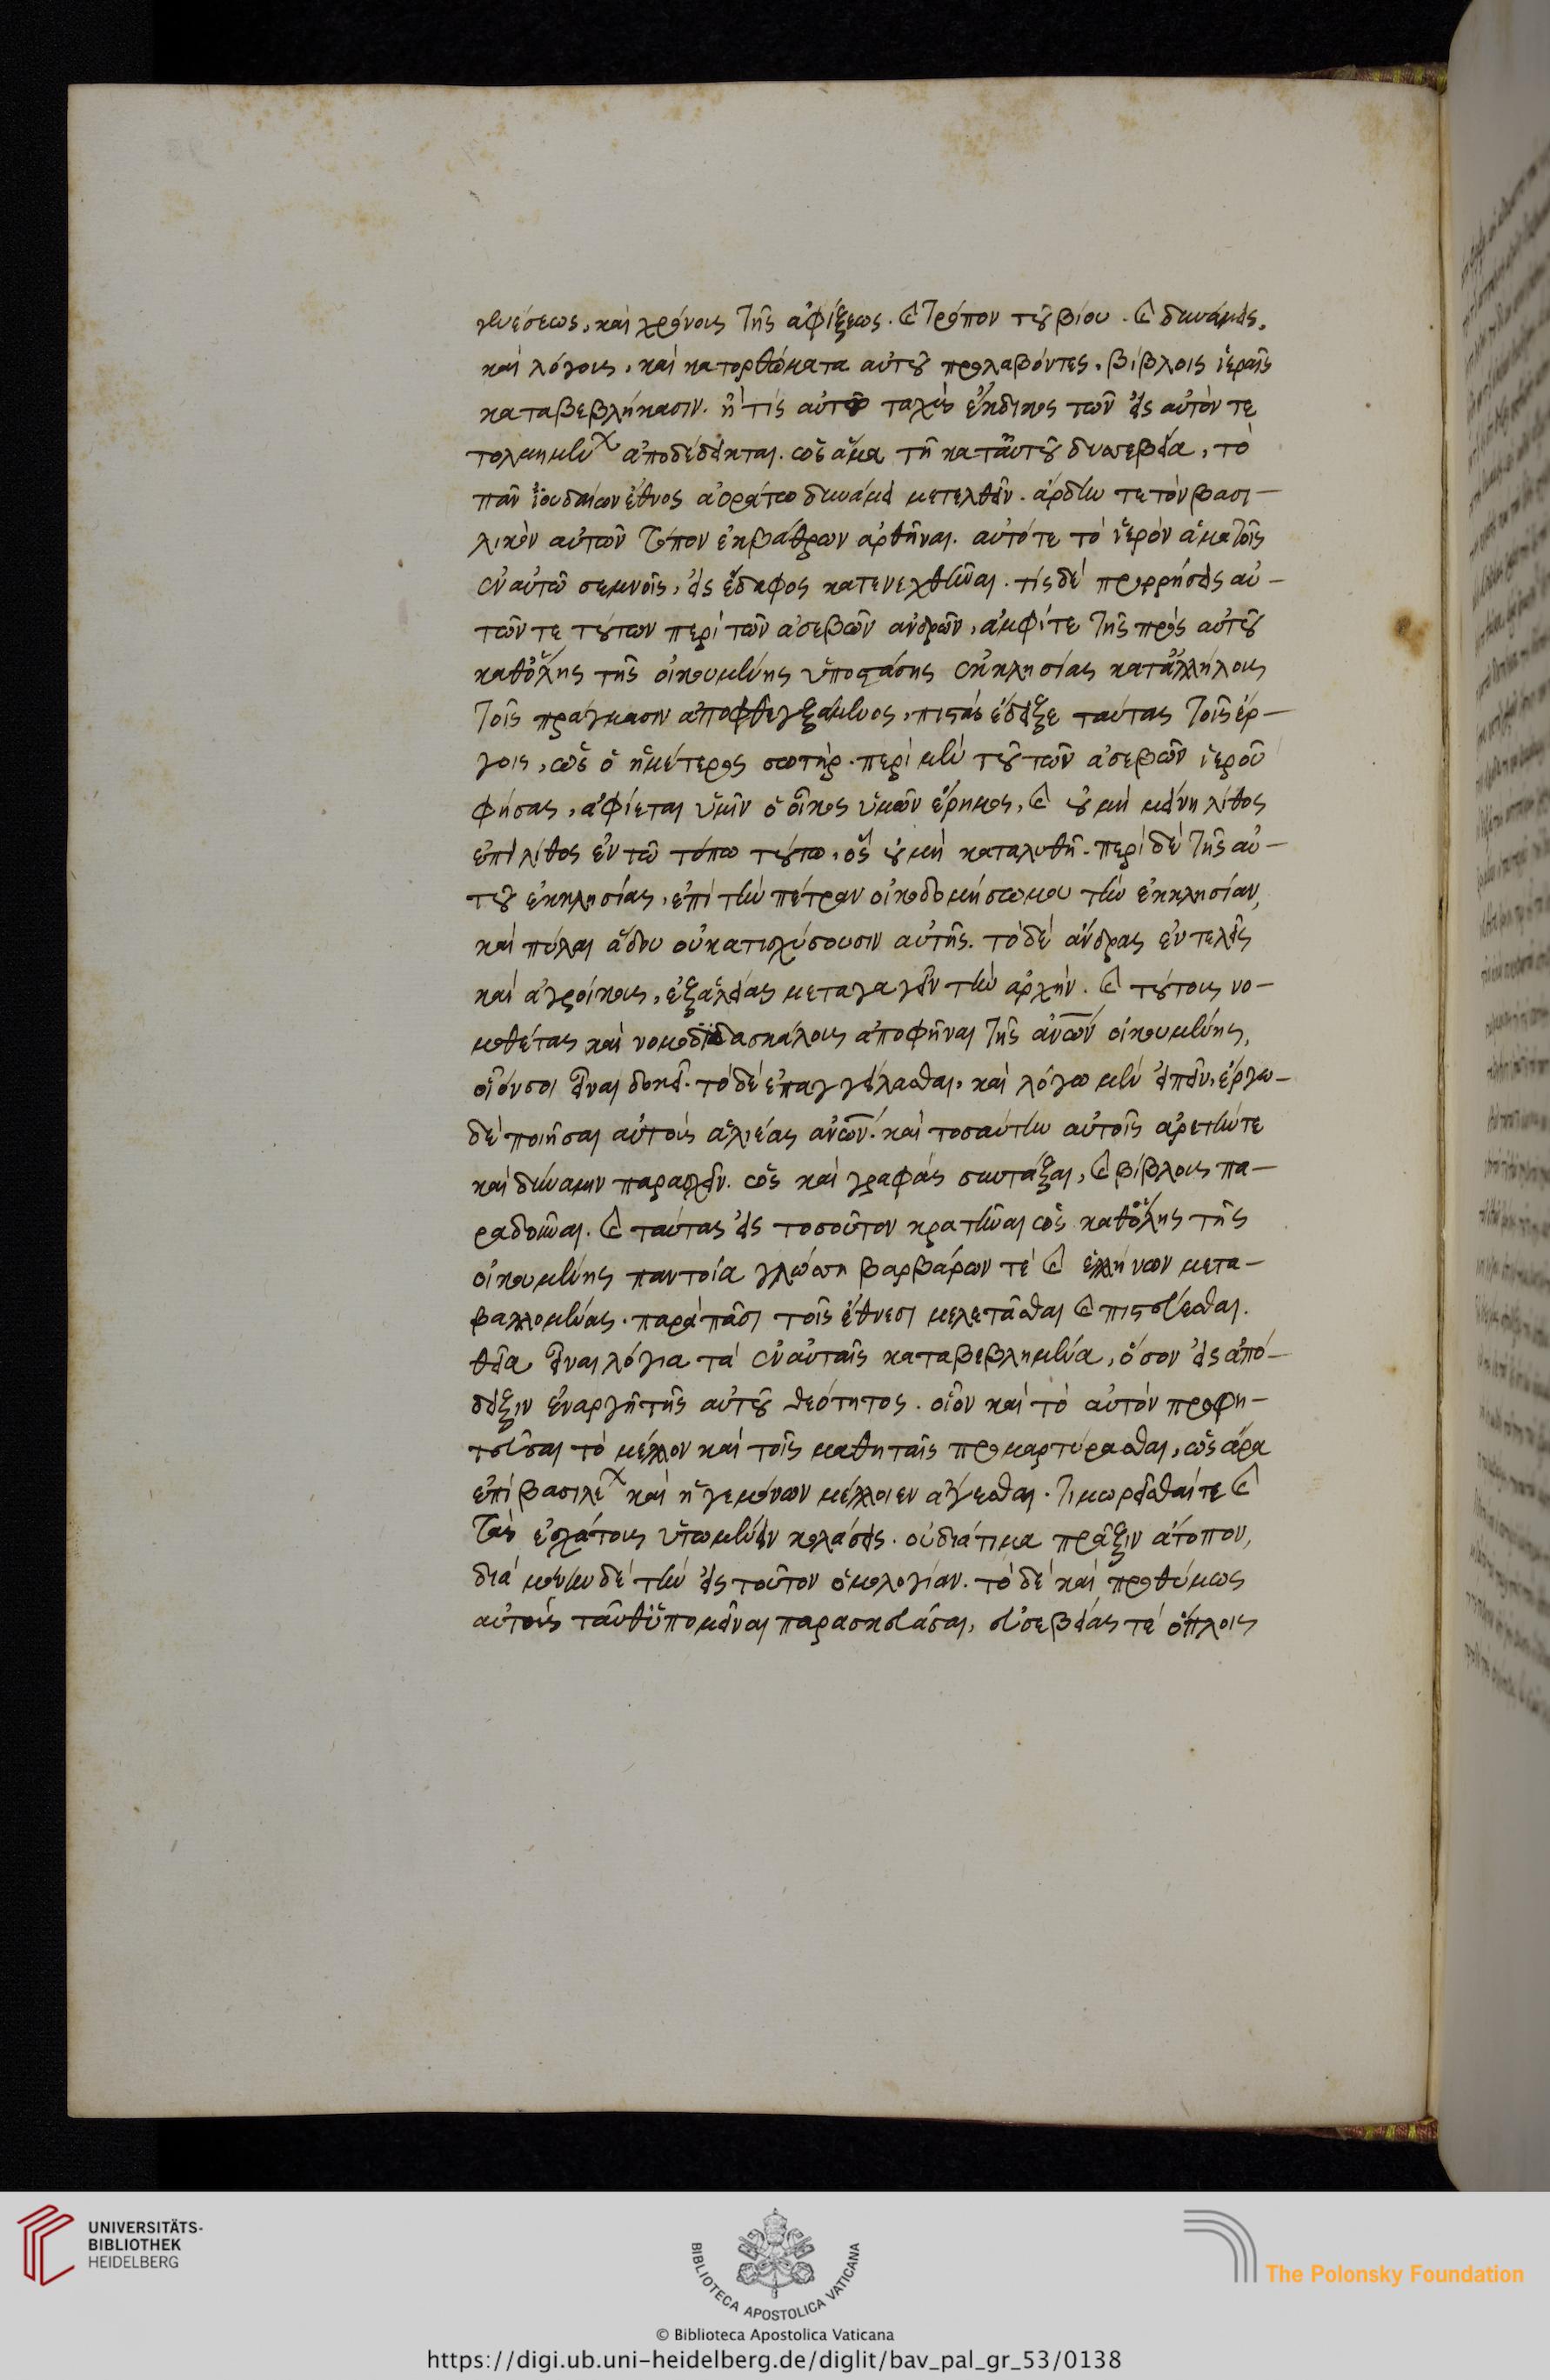 γενέσεως, καὶ χρόνους τῆς ἀφίξεως. καὶ τρόπον τοῦ βίου. καὶ δυνάμεις.
καὶ λόγους, καὶ κατορθώματα αὐτοῦ προλαβόντες, βίβλοις ἱεραῖς
καταβεβλήκασιν. ἢ τίς αὐτῷ ταχὺς ἔκδικος τῶν εἰς αὐτὸν τε
τολμημένων ἀποδέδεικται. ὡς ἅμα τῇ κατ' αὐτοῦ δυσσεβείᾳ, τὸ
πᾶν ἰουδαίων ἔθνος ἀοράτω δυνάμει μετελθεῖν. ἄρδην τε τὸν βασι-
λικὸν αὐτῶν τόπον ἐκ βάθρων ἀρθῆναι. αὐτό τε τὸ ἱερὸν ἅμα τοῖς
ἐν αὐτῷ σεμνοῖς, εἰς ἔδαφος κατενεχθῆναι. τίς δὲ προρρήσεις αὐ-
τῶν τε τούτων περὶ τῶν ἀσεβῶν ἀνδρῶν, ἀμφί τε τῆς πρὸς αὐτοῦ
καθόλης τῆς οἰκουμένης ὑποστάσης ἐκκλησίας καταλλήλους
τοῖς πράγμασιν ἀποφθεγξάμενος, πιστὰς ἔδειξε ταύτας τοῖς ἔρ-
γοις, ὡς ὁ ἡμέτερος σωτήρ. περὶ μὲν τοῦ τῶν ἀσεβῶν ἱεροῦ
φήσας, ἀφίεται ὑμῖν ὁ οἶκος ὑμῶν ἔρημος, καὶ οὐ μὴ μείνῃ λίθος
ἐπὶ λίθος ἐν τῷ τόπω τούτω, ὃς οὐ μὴ καταλυθῇ. περὶ δὲ τῆς αὐ-
τοῦ ἐκκλησίας, ἐπὶ τὴν πέτραν οἰκοδομήσω μου τὴν ἐκκλησίαν,
καὶ πύλαι ἅδου οὐ κατισχύσουσιν αὐτῆς. τὸ δὲ ἄνδρας εὐτελεῖς
καὶ ἀγροίκους, ἐξ ἁλείας μεταγαγεῖν τὴν ἀρχήν. καὶ τούτους νο-
μοθέτας καὶ νομοδιδασκάλους ἀποφῆναι τῆς ἀνων οἰκουμένης,
οἷόν σοι εἶναι δοκεῖ. τὸ δὲ ἐπαγγείλασθαι, καὶ λόγω μὲν εἰπεῖν, ἔργω-
δὲ ποιῆσαι αὐτοὺς ἁλιέας ἀνων. καὶ τοσαύτην αὐτοῖς ἀρετήν τε
καὶ δύναμιν παρασχεῖν. ὡς καὶ γραφὰς συντάξαι, καὶ βίβλους πα-
ραδοῦναι. καὶ ταύτας εἰς τοσοῦτον κρατῆναι ὡς καθόλης τῆς
οἰκουμένης παντοία γλώσση βαρβάρων τὲ καὶ ἑλλήνων μετα-
βαλλομένας. παρὰ πᾶσι τοῖς ἔθνεσι μελετᾶσθαι καὶ πιστεύεσθαι.
θεῖα εἶναι λόγια τὰ ἐν αὐταῖς καταβεβλημένα, ὅσον εἰς ἀπό-
δειξιν ἐναργῆ τῆς αὐτοῦ θεότητος. οἷον καὶ τὸ αὐτὸν προφη-
τεῦσαι τὸ μέλλον καὶ τοῖς μαθηταῖς προμαρτύρασθαι, ὡς ἄρα
ἐπὶ βασιλέων καὶ ἡγεμόνων μέλλοιεν ἄγεσθαι. τιμωρεῖσθαί τε καὶ
τὰς ἐσχάτους ὑπομένειν κολάσεις. οὐ διά τινα πρᾶξιν ἄτοπον,
διὰ μόνην δὲ τὴν εἰς τοῦτον ὁμολογίαν. τὸ δὲ καὶ προθύμως
αὐτοὺς ταῦθ' ὑπομεῖναι παρασκευάσαι, εὐσεβείας τὲ ὅπλοις
UNIVERSITÄTS-
BIBLIOTHEK
HEIDELBERG
BIBLIOTECA APOSTOLICA VATICANA
The Polonsky Foundation
© Biblioteca Apostolica Vaticana
https://digi.ub.uni-heidelberg.de/diglit/bav_pal_gr_53/0138